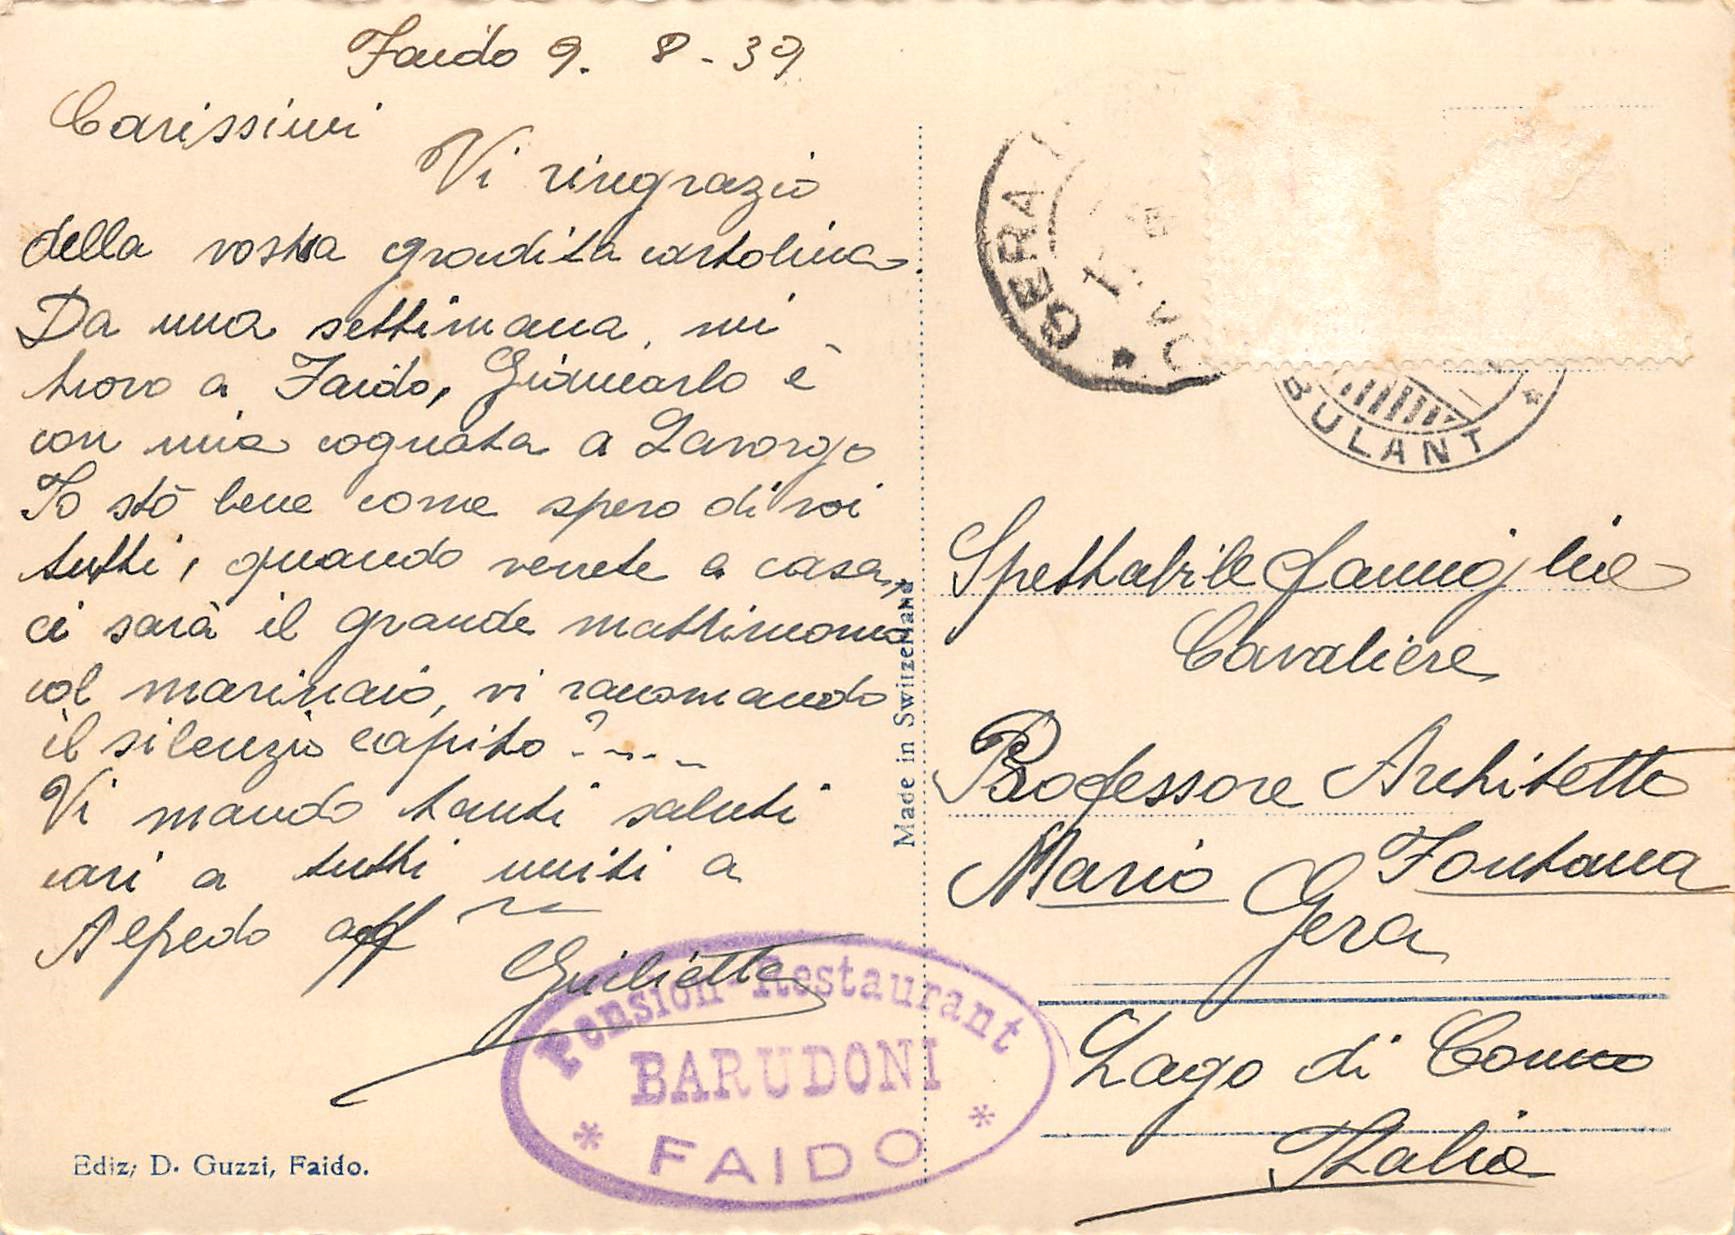 Faido 9. 8 - 39
Carissimi
Vi ringrazio
della vostra gradita cartolina.
Da una settimana mi
trovo a Faido, Giancarlo è
con mia cognata a Lavorgo
Io stò bene come spero di voi
tutti, quando verrete a casa,
ci sarà il grande mattimonio
col marinaio, vi racomando
il silenzio capito? ....
Vi mando tanti saluti
cari a tutti uniti a
Alfredo aff
Giulietta
Ediz. D. Guzzi, Faido.
Made in Switzerland
Pension-Restaurant
BARUDONI
* FAIDO *
* GERA
BULANT *
Spettabile famiglia
Cavaliere
Professore Architetto
Mario Fontana
Gera
Lago di Como
Italia